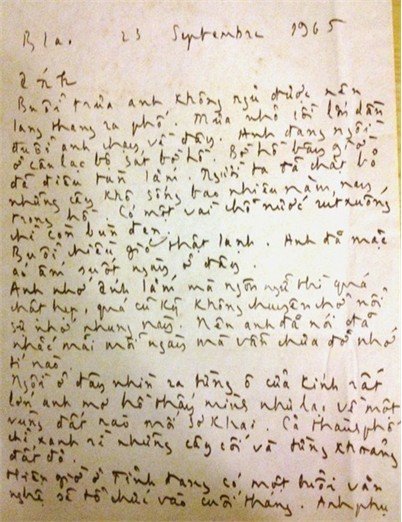 Bla. 23 Septembre 1965
ánh
Buổi trưa anh không ngủ được nên
lang thang ra phố. Mùa nhỏ
đuổi anh chạy về đây. Anh đang ngồi
ở câu lạc bộ sát bờ hồ. Bờ hồ bây giờ
đã điêu tàn lắm. Người ta đã chặt bỏ
những cây khô sống bao nhiêu năm nay
trong hồ. Có một vài chỗ nước rút xuống
chỉ còn bùn đen.
Buổi chiều gió thật lạnh. Anh đã mặc
áo ấm suốt ngày ở đây.
Anh nhớ Ánh lắm mà ngôn ngữ thì quá
chật hẹp, quá cũ kỹ không chuyên chở nổi
sự nhớ nhung này. Nên anh đã nói đã
nhắc mãi mỗi ngày mà vẫn chưa đỡ nhớ
tí nào
Ngồi ở đây nhìn ra từng ô cửa kính rất
lớn anh mơ hồ thấy mình như lạc về một
vùng đất nào mới sơ khai. Cả thành phố
chỉ xanh rì những cây cối và từng khoảng
đất đỏ.
Hiện giờ ở Tỉnh đang có một buổi văn
nghệ sẽ tổ chức vào cuối tháng. Anh phụ